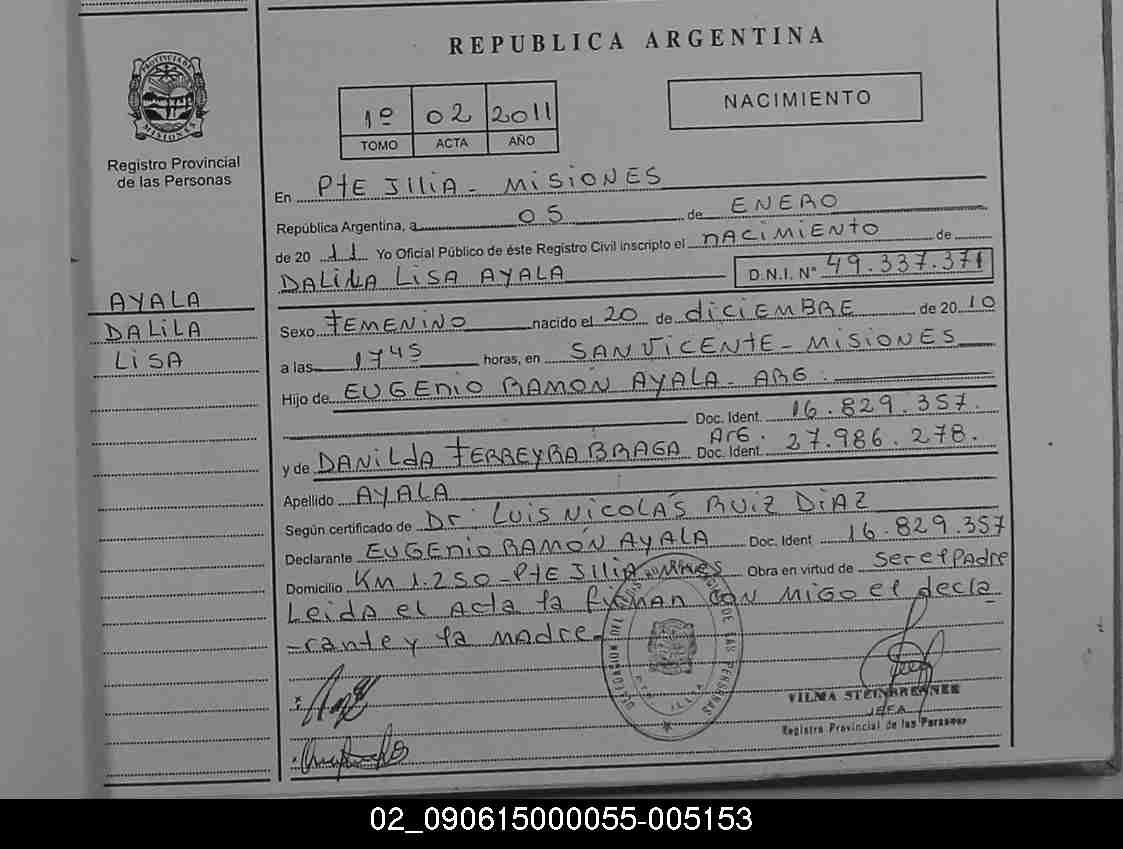 REPUBLICA ARGENTINA
PROVINCIA DE MISIONES
Registro Provincial
de las Personas
1º 02 2011
TOMO ACTA AÑO
NACIMIENTO
En PtE Jllia - MisiONES
República Argentina, a 05 de ENERO
de 20 11 Yo Oficial Público de éste Registro Civil inscripto el NACIMIENTO de
DALILA LISA AYALA D.N.I. Nº 49.337.371
AYALA
DALILA
LISA
Sexo FEMENINO nacido el 20 de diciEMBRE de 2010
a las 1745 horas, en SAN VICENTE - MISIONES
Hijo de EUGENIO RAMÓN AYALA - ARG.
Doc. Ident. 16.829.357.
y de DANILDA FERREYRA BRAGA ARG. Doc. Ident. 27.986.278.
Apellido AYALA
Según certificado de Dr. LUIS NICOLÁS RUIZ DIAZ
Declarante EUGENIO RAMÓN AYALA Doc. Ident 16.829.357
Domicilio Km 1.250 - PtE Jllia Mnes Obra en virtud de ser el PAdre
Leida el Acta la firman con migo el decla
-rante y la madre.
DE LAS PERSONAS
VILMA STEINBRENNER
JEFA
Registro Provincial de las Personas
02_090615000055-005153